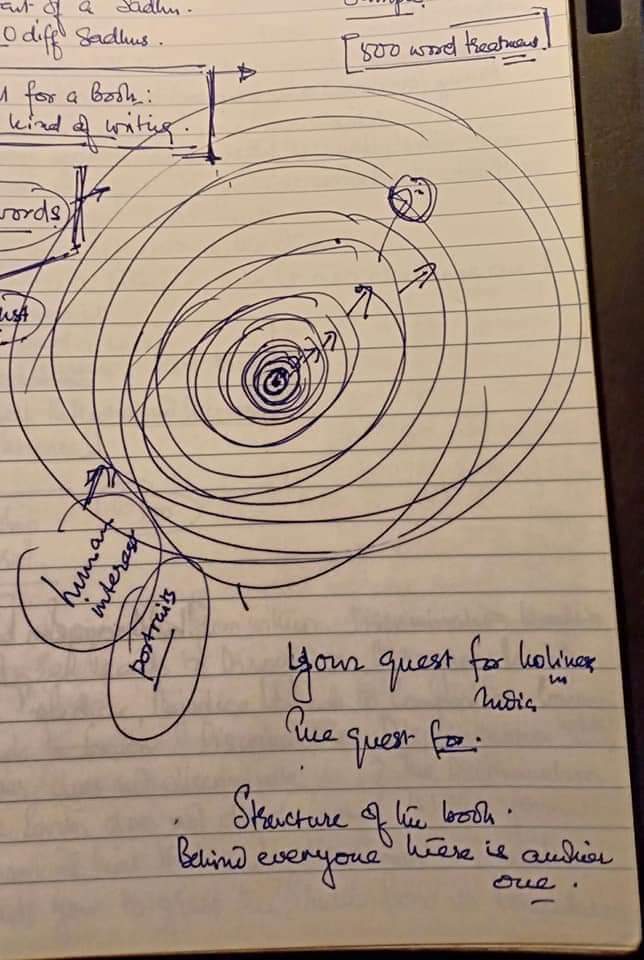 of a Sadhu.
0 diff Sadhus.
[500 word treatment]
for a book:
kind of writing.
words
human
interest
portraits
your quest for holiness
in
India
The quest for.
Structure of the book.
Behind everyone there is another
one.